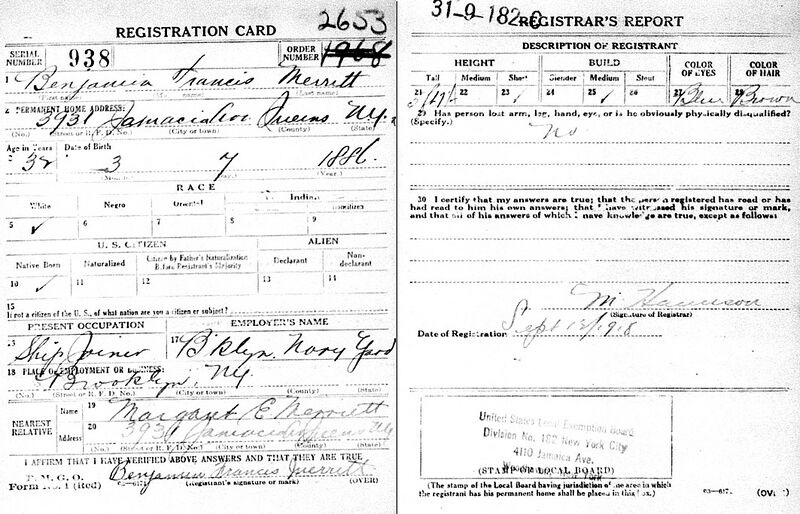 REGISTRATION CARD
2653
SERIAL NUMBER 938
ORDER NUMBER 1968
1 Benjamin Francis Merritt
(First name) (Last name)
2 PERMANENT HOME ADDRESS:
3931 Jamaica Av Queens N.Y.
(No.) (Street or R. F. D. No.) (City or town) (County) (State)
Age in Years Date of Birth
32 3 7 1886.
(Year.)
RACE
White Negro Oriental Indian
5 ✓ 6 7 8 9
U. S. CITIZEN ALIEN
Native Born Naturalized Citizen by Father's Naturalization Before Registrant's Majority Declarant Non-declarant
10 ✓ 11 12 13 14
15
If not a citizen of the U. S., of what nation are you a citizen or subject?
PRESENT OCCUPATION EMPLOYER'S NAME
16 Ship Joiner 17 Bklyn. Navy Yard
18 PLACE OF EMPLOYMENT OR BUSINESS:
Brooklyn, NY
(No.) (Street or R. F. D. No.) (City or town) (County) (State)
NEAREST RELATIVE
Name 19 Margaret E Merritt
Address 20 3931 Jamaica Queens NY
(No.) (Street or R. F. D. No.) (City or town) (County) (State)
I AFFIRM THAT I HAVE VERIFIED ABOVE ANSWERS AND THAT THEY ARE TRUE
P. M. G. O.
Form No. 1 (Red)
Benjamin Francis Merritt
(Registrant's signature or mark) (OVER)
31-9-182 C
REGISTRAR'S REPORT
DESCRIPTION OF REGISTRANT
HEIGHT BUILD COLOR OF EYES COLOR OF HAIR
Tall Medium Short Slender Medium Stout
21 22 23 ✓ 24 25 ✓ 26 27 Blue 28 Brown
29 Has person lost arm, leg, hand, eye, or is he obviously physically disqualified?
(Specify.)
No
30 I certify that my answers are true; that the person registered has read or has
had read to him his own answers; that I have witnessed his signature or mark,
and that all of his answers of which I have knowledge are true, except as follows:
M. Harrison
(Signature of Registrar)
Date of Registration Sept 12/1918
United States Local Exemption Board
Division No. 182 New York City
4110 Jamaica Ave.
New York
(STAMP OF LOCAL BOARD)
(The stamp of the Local Board having jurisdiction of the area in which
the registrant has his permanent home shall be placed in this box.)
03—617 (OVER)